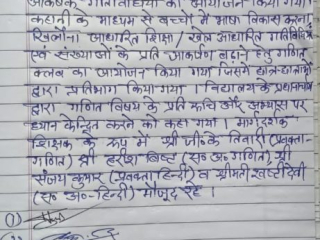 आकर्षक गतिविधियों का आयोजन किया गया।
कहानी के माध्यम से बच्चों में भाषा विकास करना
खिलौना आधारित शिक्षा / खेल आधारित गतिविधि
एवं संख्याओं के प्रति आकर्षण बढ़ाने हेतु गणित
क्लब का आयोजन किया गया जिसमें छात्र-छात्राओं
द्वारा प्रतिभाग किया गया। विद्यालय के प्रधानाचार्य
द्वारा गणित विषय के प्रति रूचि और अभ्यास पर
ध्यान केन्द्रित करने को कहा गया। मार्गदर्शक
शिक्षक के रूप में श्री जी०के तिवारी (प्रवक्ता-
गणित) श्री हरीश बिष्ट (स० अ० गणित) श्री
संजय कुमार (प्रवक्ता हिन्दी) व श्रीमती षष्टी देवी
(स० अ०-हिन्दी) मौजूद रहे।
(1)